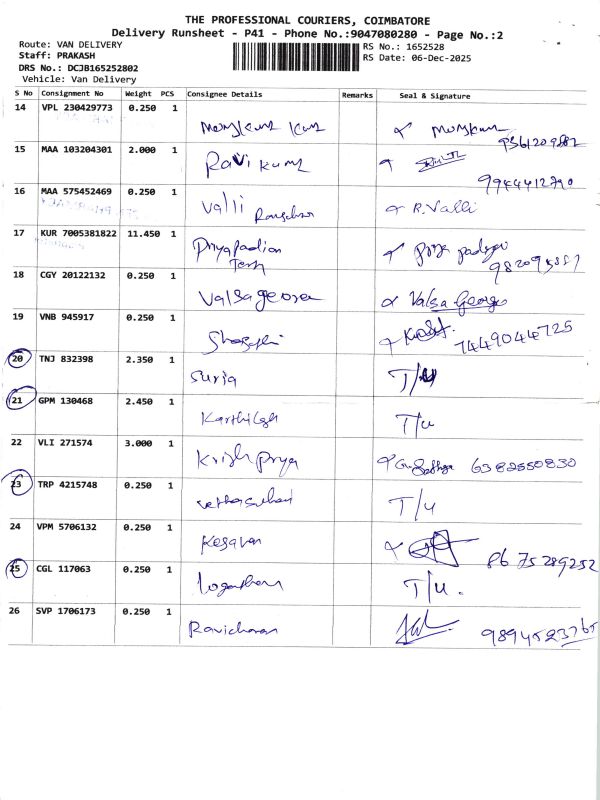 THE PROFESSIONAL COURIERS, COIMBATORE
Delivery Runsheet - P41 - Phone No.:9047080280 - Page No.:2
Route: VAN DELIVERY
Staff: PRAKASH
DRS No.: DCJB165252802
Vehicle: Van Delivery
RS No.: 1652528
RS Date: 06-Dec-2025
S No Consignment No Weight PCS Consignee Details Remarks Seal & Signature
14 VPL 230429773 0.250 1
15 MAA 103204301 2.000 1 Ravi kumr
9944412790
16 MAA 575452469 0.250 1 Valli R. Valli
17 KUR 7005381822 11.450 1 Priyapadian
18 CGY 20122132 0.250 1 Valsageorge Valsa George
19 VNB 945917 0.250 1 7449044725
20 TNJ 832398 2.350 1 Surja T/u
21 GPM 130468 2.450 1 Karthikah T/u
22 VLI 271574 3.000 1 Krish priya 6382550830
23 TRP 4215748 0.250 1 T/u
24 VPM 5706132 0.250 1 Kesavan 8675289252
25 CGL 117063 0.250 1 T/u.
26 SVP 1706173 0.250 1 Ravicharan